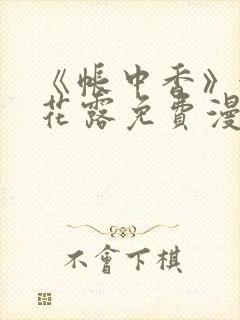 《帳中香》
花露免費漫
不會下棋